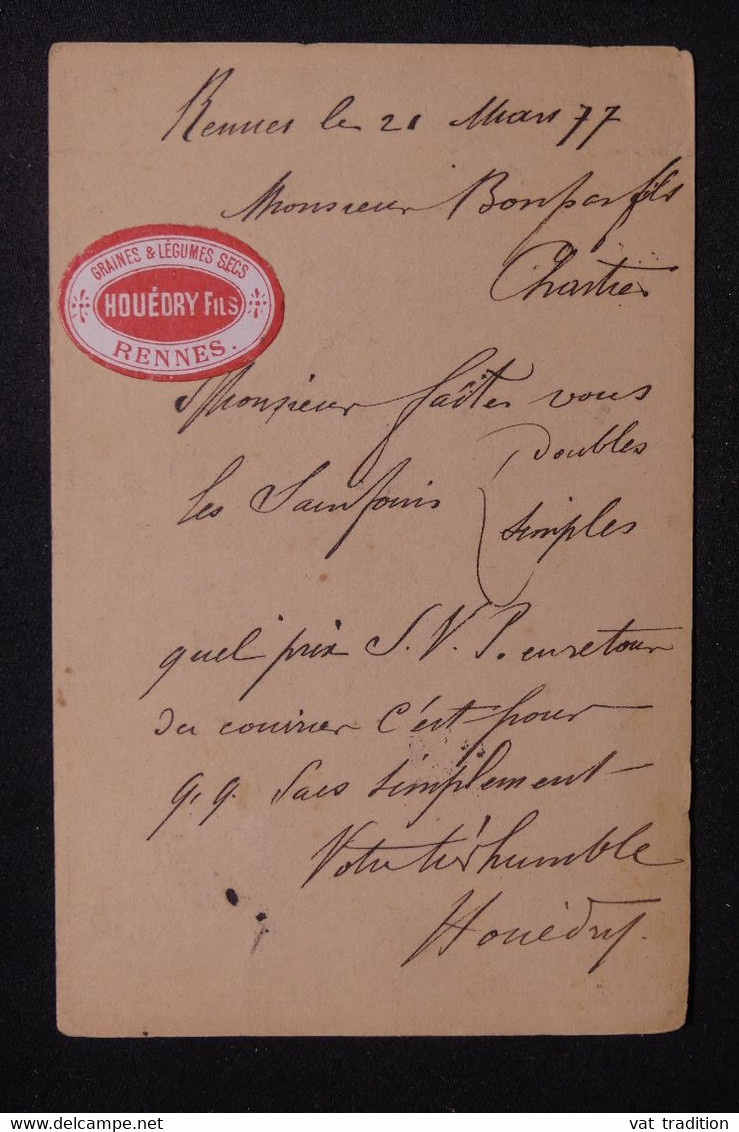 Rennes le 21 Mars 77
Monsieur Bonpar fils
Chartres
GRAINES & LÉGUMES SECS
HOUÉDRY FILS
RENNES.
Monsieur faites vous
les Sainfoins doubles
simples
quel prix S. V. P. en retour
du courrier c'est pour
q. q. Sacs simplement
Votre très humble
Houédry.
vat tradition